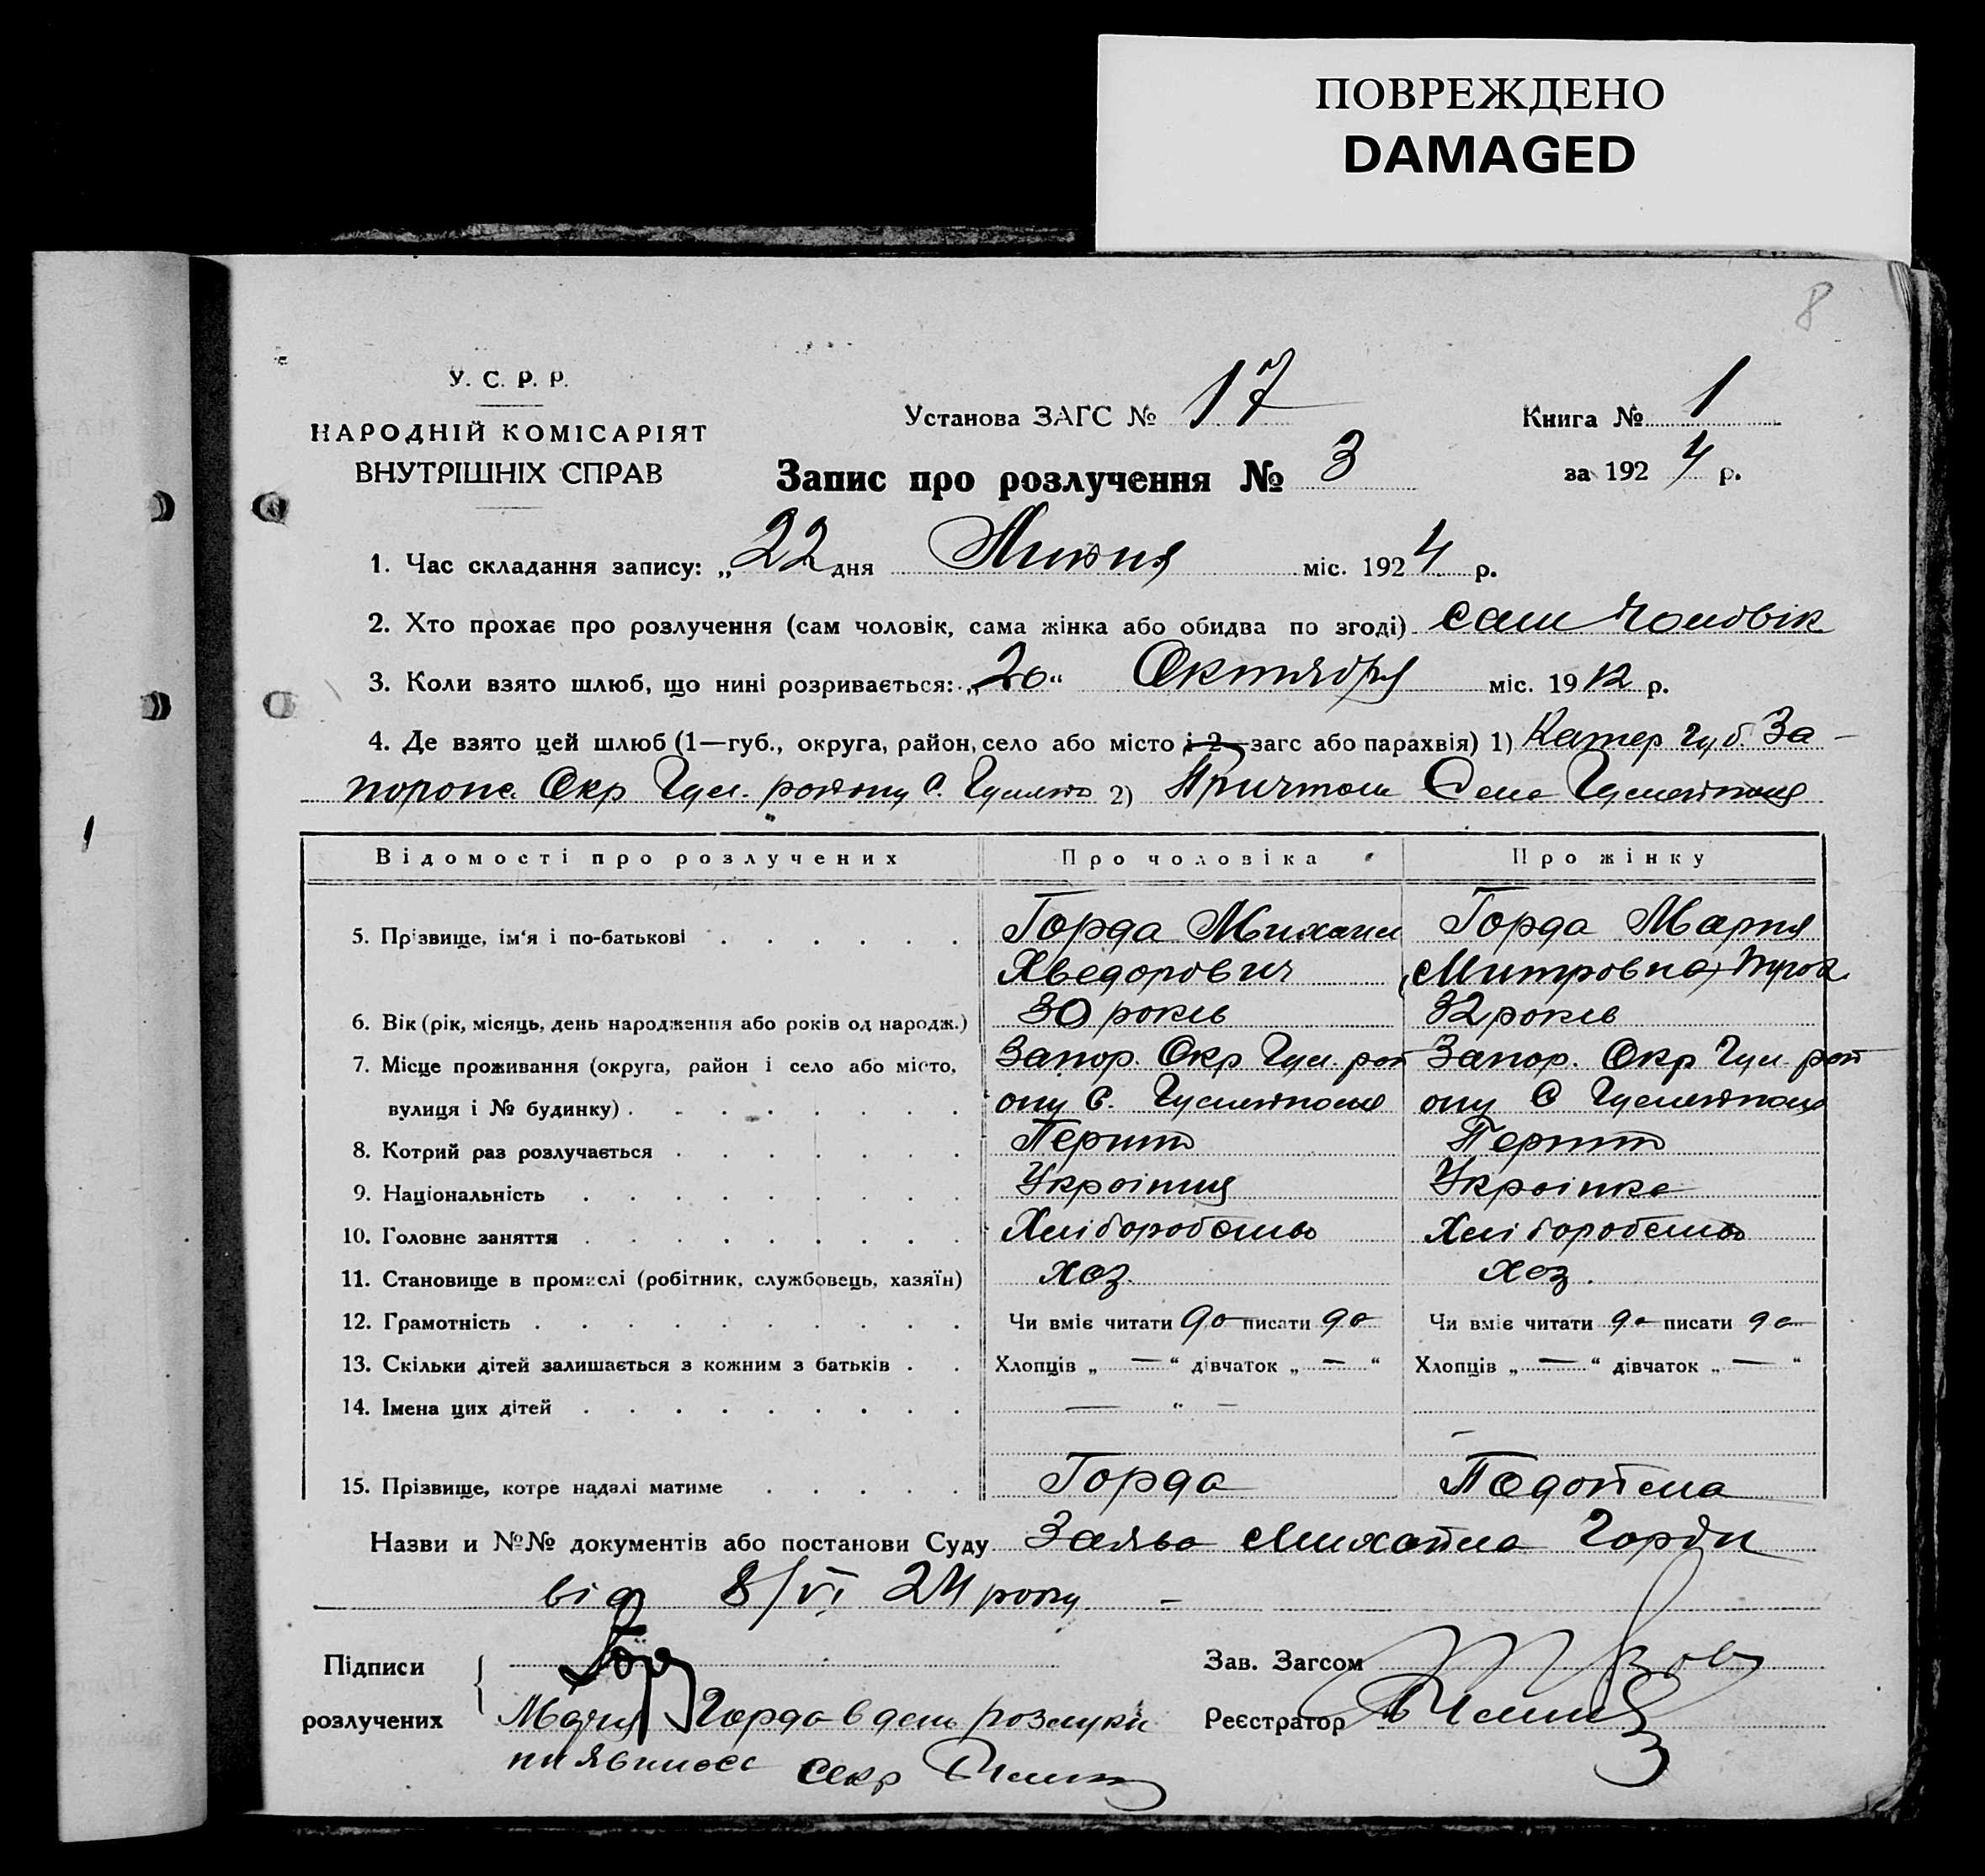 ПОВРЕЖДЕНО
DAMAGED
8
У. С. Р. Р.
НАРОДНІЙ КОМІСАРІЯТ
ВНУТРІШНІХ СПРАВ
Установа ЗАГС № 17
Книга № 1
Запис про розлучення № 3
за 1924 р.
1. Час складання запису: „22 дня Липня міс. 1924 р.
2. Хто прохає про розлучення (сам чоловік, сама жінка або обидва по згоді) сам Чоловік
3. Коли взято шлюб, що нині розривається: „20“ Октября міс. 1912 р.
4. Де взято цей шлюб (1—губ., округа, район, село або місто і 2—загс або парахвія) 1) Катер губ. За-
порож. Окр Гул. району с. Гуляйпо 2) Причтом Села Гуляйполя
Відомості про розлучених Про чоловіка Про жінку
5. Прізвище, ім'я і по-батькові Горда Михаил Горда Мария
Хведорович Митровна
6. Вік (рік, місяць, день народження або років од народж.) 30 років 32 років
7. Місце проживання (округа, район і село або місто, Запор. Окр Гул. рай Запор. Окр Гул. рай
вулиця і № будинку) ону С. Гуляйполя ону С Гуляйполя
8. Котрий раз розлучається
9. Національність Українця Українка
10. Головне заняття Хліборобство Хліборобство
11. Становище в промислі (робітник, службовець, хазяїн) хоз. хоз.
12. Грамотність Чи вміє читати да писати да Чи вміє читати да писати да
13. Скільки дітей залишається з кожним з батьків Хлопців „ — “ дівчаток „ — “ Хлопців „ — “ дівчаток „ — “
14. Імена цих дітей — “ — —
15. Прізвище, котре надалі матиме Горда
Назви и №№ документів або постанови Суду Заява Михайла Горди
від 8/VI 24 року —
Підписи Зав. Загсом
розлучених Мария Горда в день розлуки Реєстратор
ни явилось секр